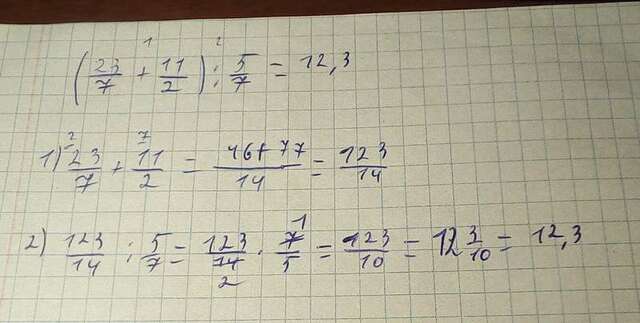 (23/7 + 11/2) : 5/7 = 12,3
1) 23/7 + 11/2 = 46+77/14 = 123/14
2) 123/14 : 5/7 = 123/14 · 7/5 = 123/10 = 12 3/10 = 12,3